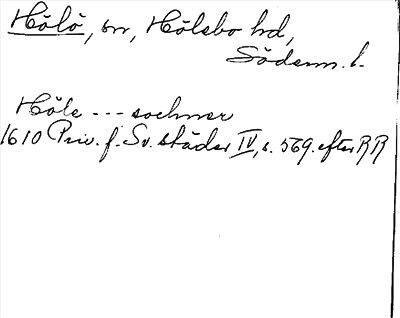 Hölö, sn, Hölebo hd,
Söderm. l.
Höle --- sochner
1610 Priv. f. Sv. städer IV, s. 569. efter RR